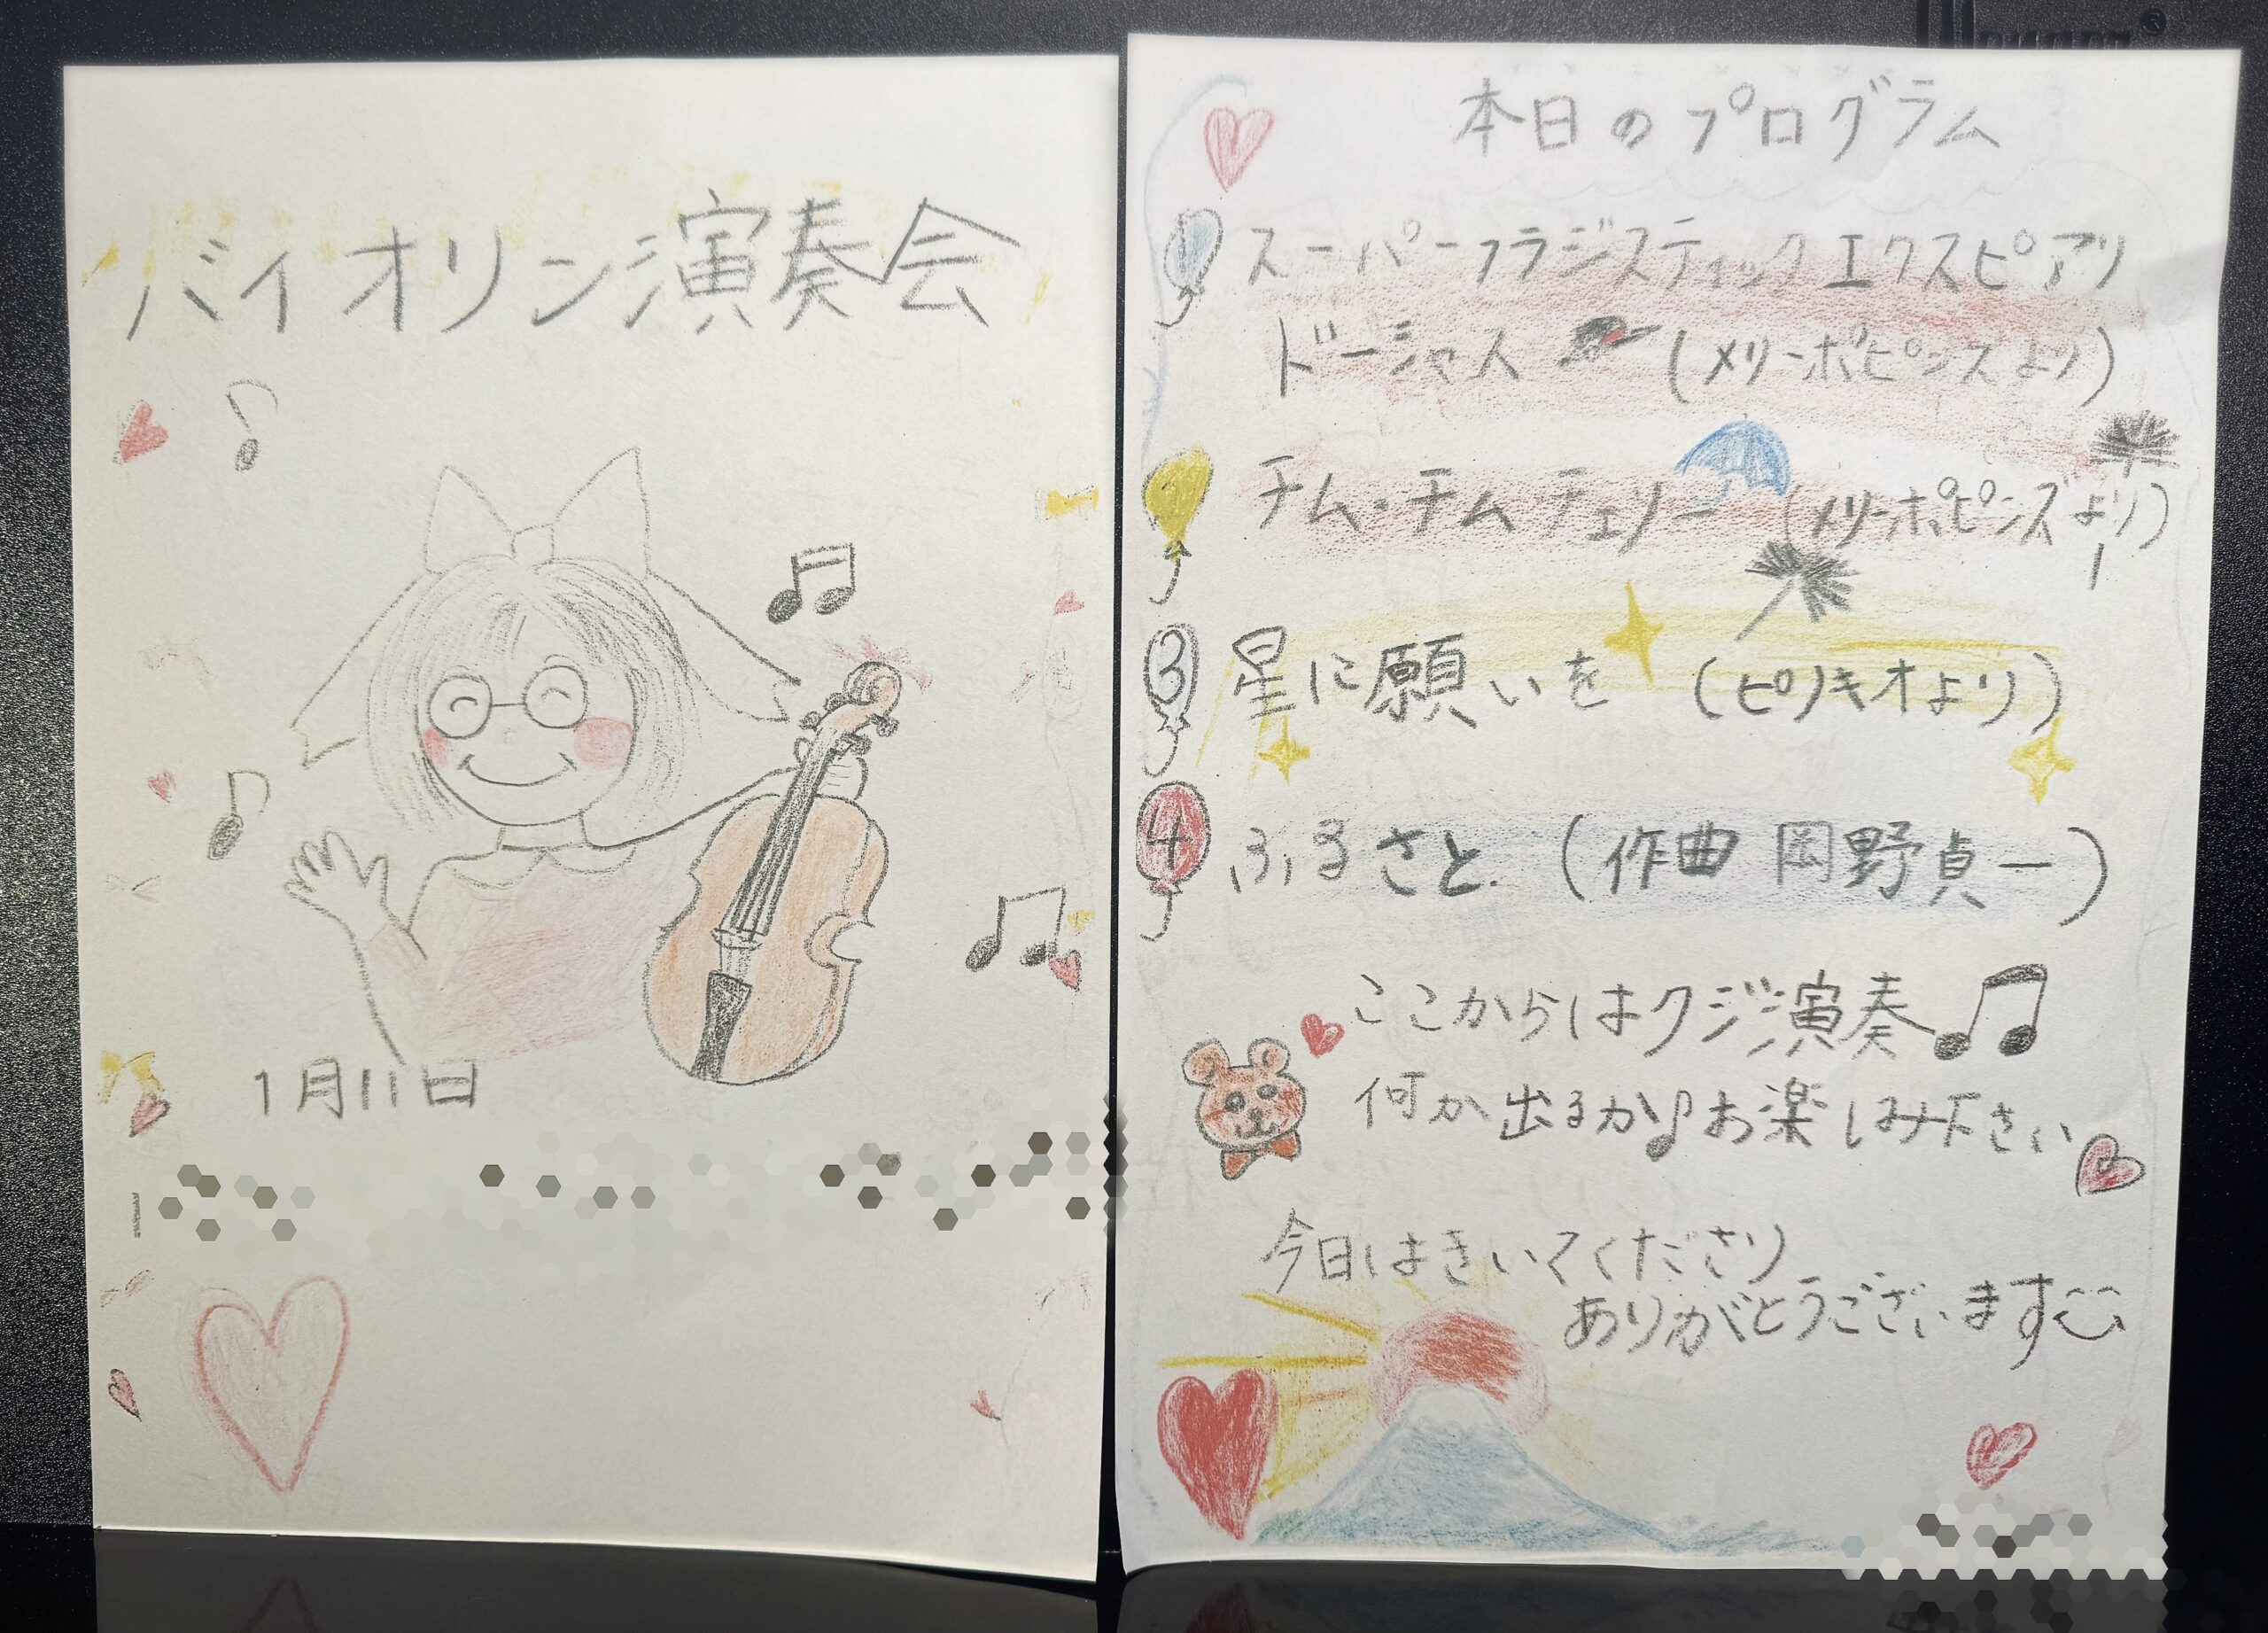 バイオリン演奏会
1月11日
本日のプログラム
スーパーフラジスティックエクスピアリ
ドーシャス (メリーポピンスより)
チム・チムチェリー (メリーポピンズより)
3 星に願いを (ピノキオより)
4 ふるさと (作曲 岡野貞一)
ここからはクジ演奏
何か出るか♪お楽しみ下さい
今日はきいてくださり
ありがとうございます